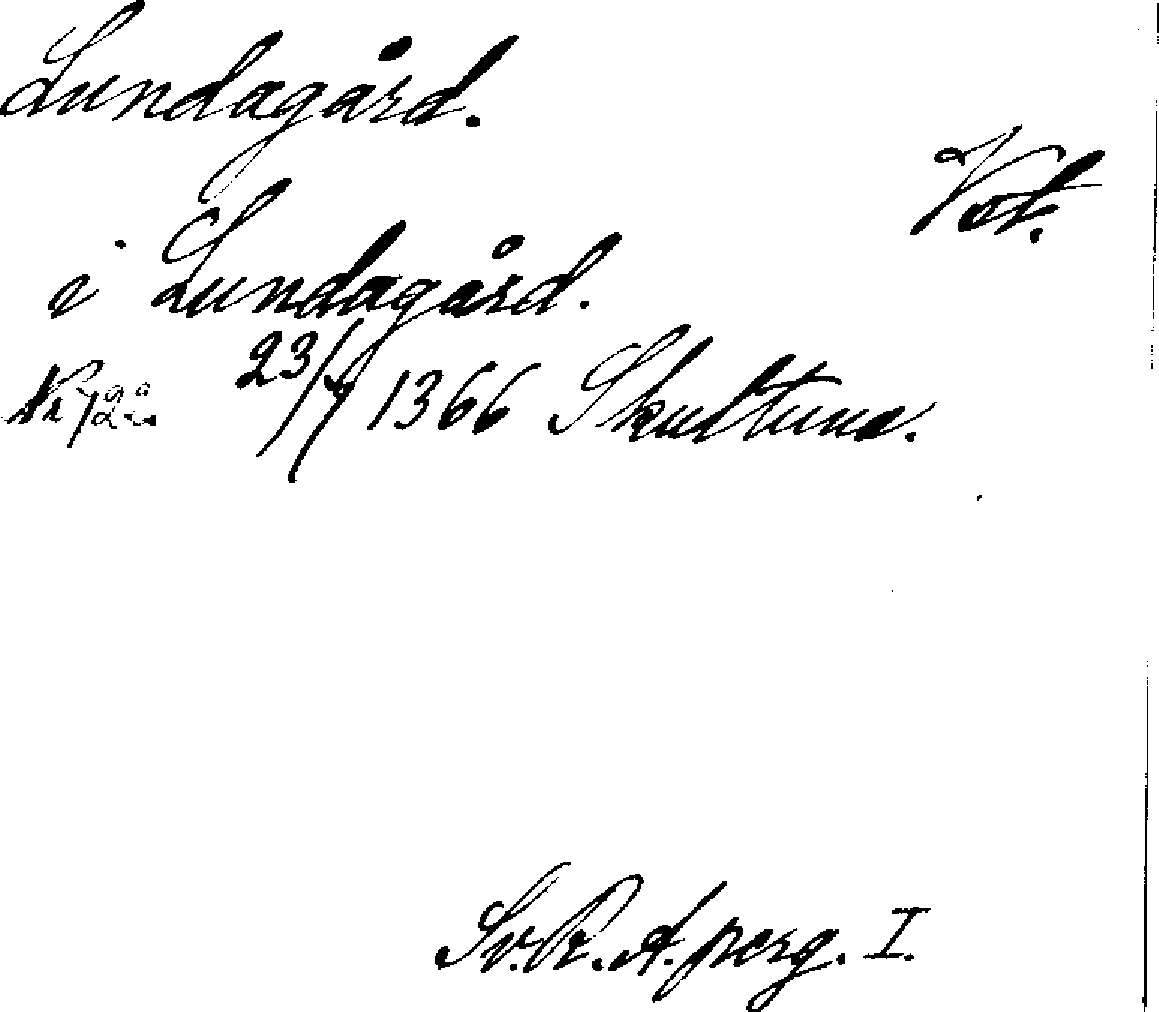 Lundagård.
Vst.
i Lundagård.
Nr 722 23/7 1366 Skultuna.
Sv. R. A. perg. I.